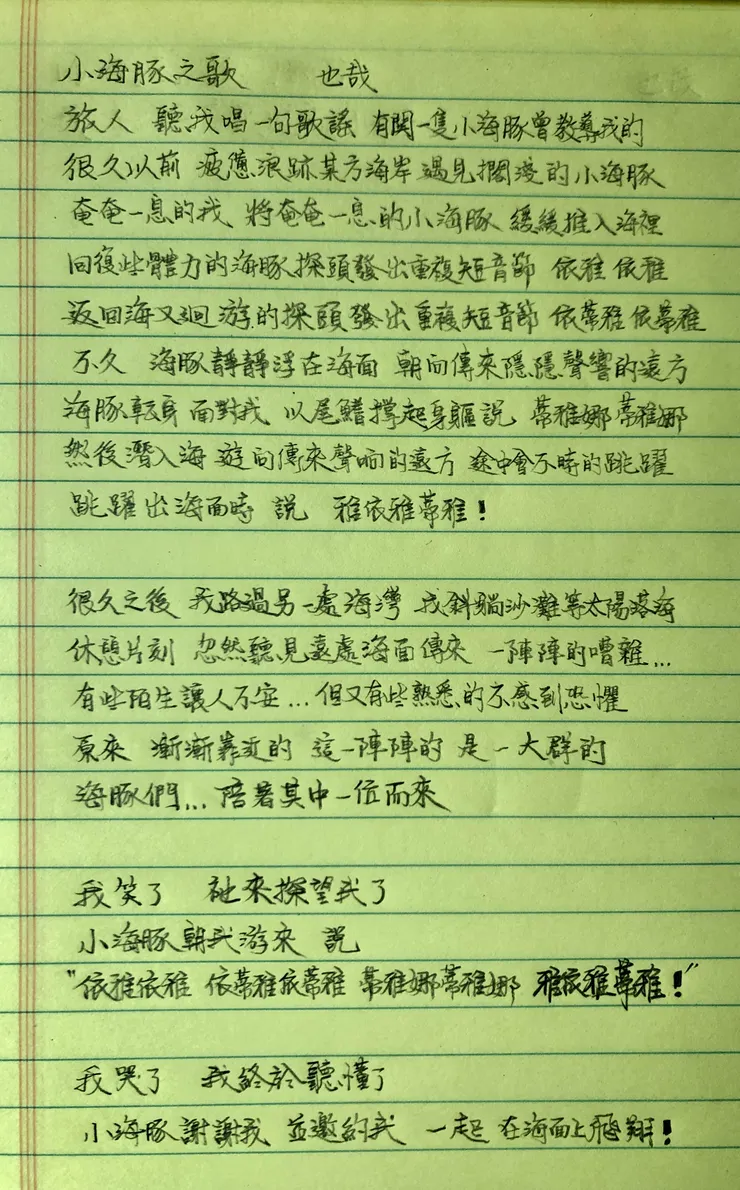 小海豚之歌 也哉
旅人 聽我唱一句歌謠 有関一隻小海豚曾教導我的
很久以前 疲憊浪跡某方海岸 遇見擱淺的小海豚
奄奄一息的我 將奄奄一息的小海豚 緩緩推入海裡
回復些體力的海豚探頭發出重複短音節 依雅依雅
返回海又迴游的探頭發出重複短音節 依蒂雅依蒂雅
不久 海豚靜靜浮在海面 朝向傳來隱隱聲響的遠方
海豚転身面對我 以尾鰭撐起身軀說 蒂雅娜蒂雅娜
然後潛入海 遊向傳來聲响的遠方 途中會不時的跳躍
跳躍出海面時 說 雅依雅蒂雅!
很久之後 我路過另一處海灣 我斜躺沙灘等太陽落海
休憩片刻 忽然聽見遠處海面傳來 一陣陣的嘈雜...
有些陌生讓人不安...但又有些熟悉的不感到恐懼
原來 漸漸靠近的 這一陣陣的 是一大群的
海豚們... 陪著其中一位而來
我笑了 祂來探望我了
小海豚朝我游來 說
"依雅依雅 依蒂雅依蒂雅 蒂雅娜蒂雅娜 雅依雅蒂雅!"
我哭了 我終於聽懂了
小海豚謝謝我 並邀約我 一起 在海面上飛翔!